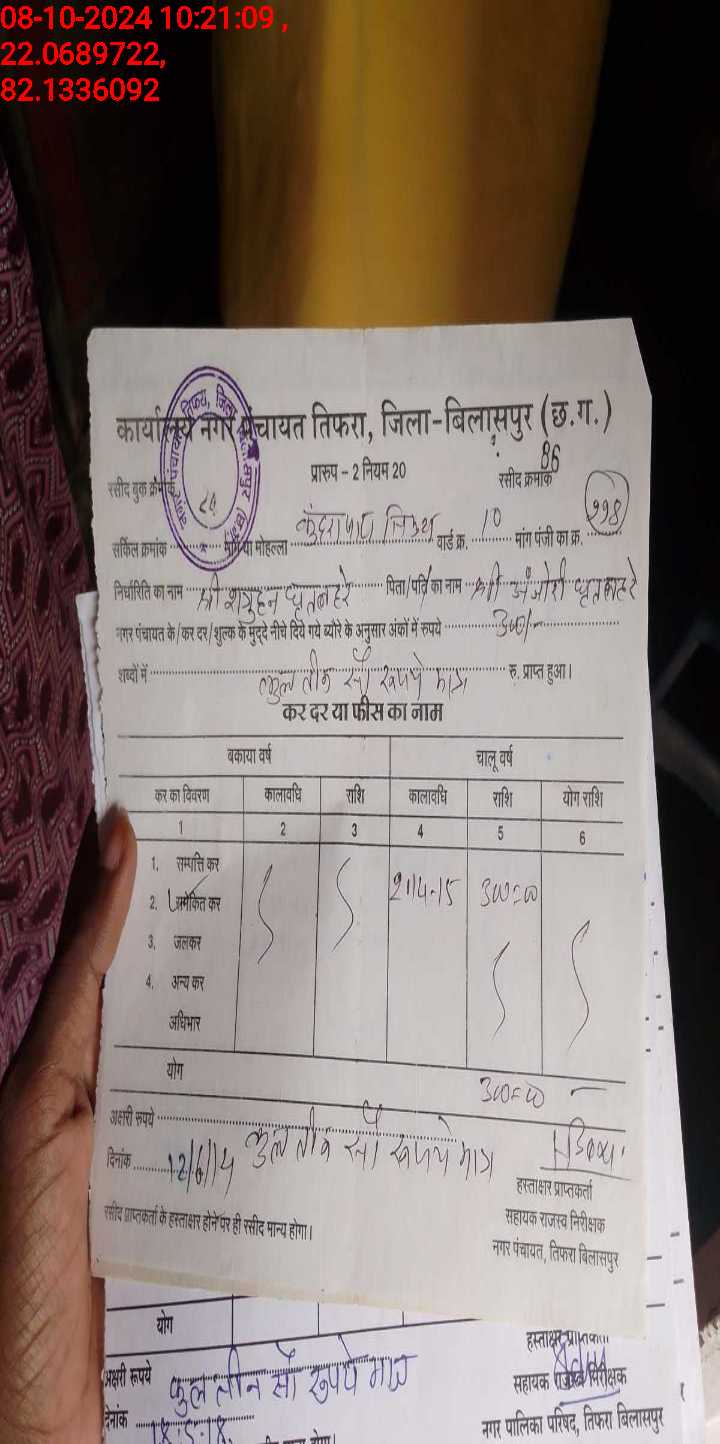 08-10-2024 10:21:09 ,
22.0689722,
82.1336092
कार्यालय नगर पंचायत तिफरा, जिला-बिलासपुर (छ.ग.)
प्रारुप - 2 नियम 20
86
रसीद बुक क्रमांक रसीद क्रमांक
सर्किल क्रमांक मार्ग या मोहल्ला वार्ड क्र. 10 मांग पंजी का क्र.
निर्धारिति का नाम श्री शत्रुहन धृतलहरे पिता/पति का नाम श्री अंजोरी
नगर पंचायत के/कर दर/शुल्क के मुददे नीचे दिये गये ब्योरे के अनुसार अंकों में रूपये 300/-
शब्दों में कुल तीन सौ रूपये मात्र रु. प्राप्त हुआ।
कर दर या फीस का नाम
बकाया वर्ष चालू वर्ष
कर का विवरण कालावधि राशि कालावधि राशि योग राशि
1 2 3 4 5 6
1. सम्पत्ति कर
2. समेकित कर 2014-15 300=00
3. जलकर
4. अन्य कर
अधिभार
योग 300=00
अक्षरी रूपये कुल तीन सौ रूपये मात्र
दिनांक 12/6/14
हस्ताक्षर प्राप्तकर्ता
रसीद प्राप्तकर्ता के हस्ताक्षर होने पर ही रसीद मान्य होगा। सहायक राजस्व निरीक्षक
नगर पंचायत, तिफरा बिलासपुर
योग
हस्ताक्षर
अक्षरी रूपये कुल तीन सौ रुपये मात्र सहायक राजस्व निरीक्षक
18.5.18. नगर पालिका परिषद, तिफरा बिलासपुर